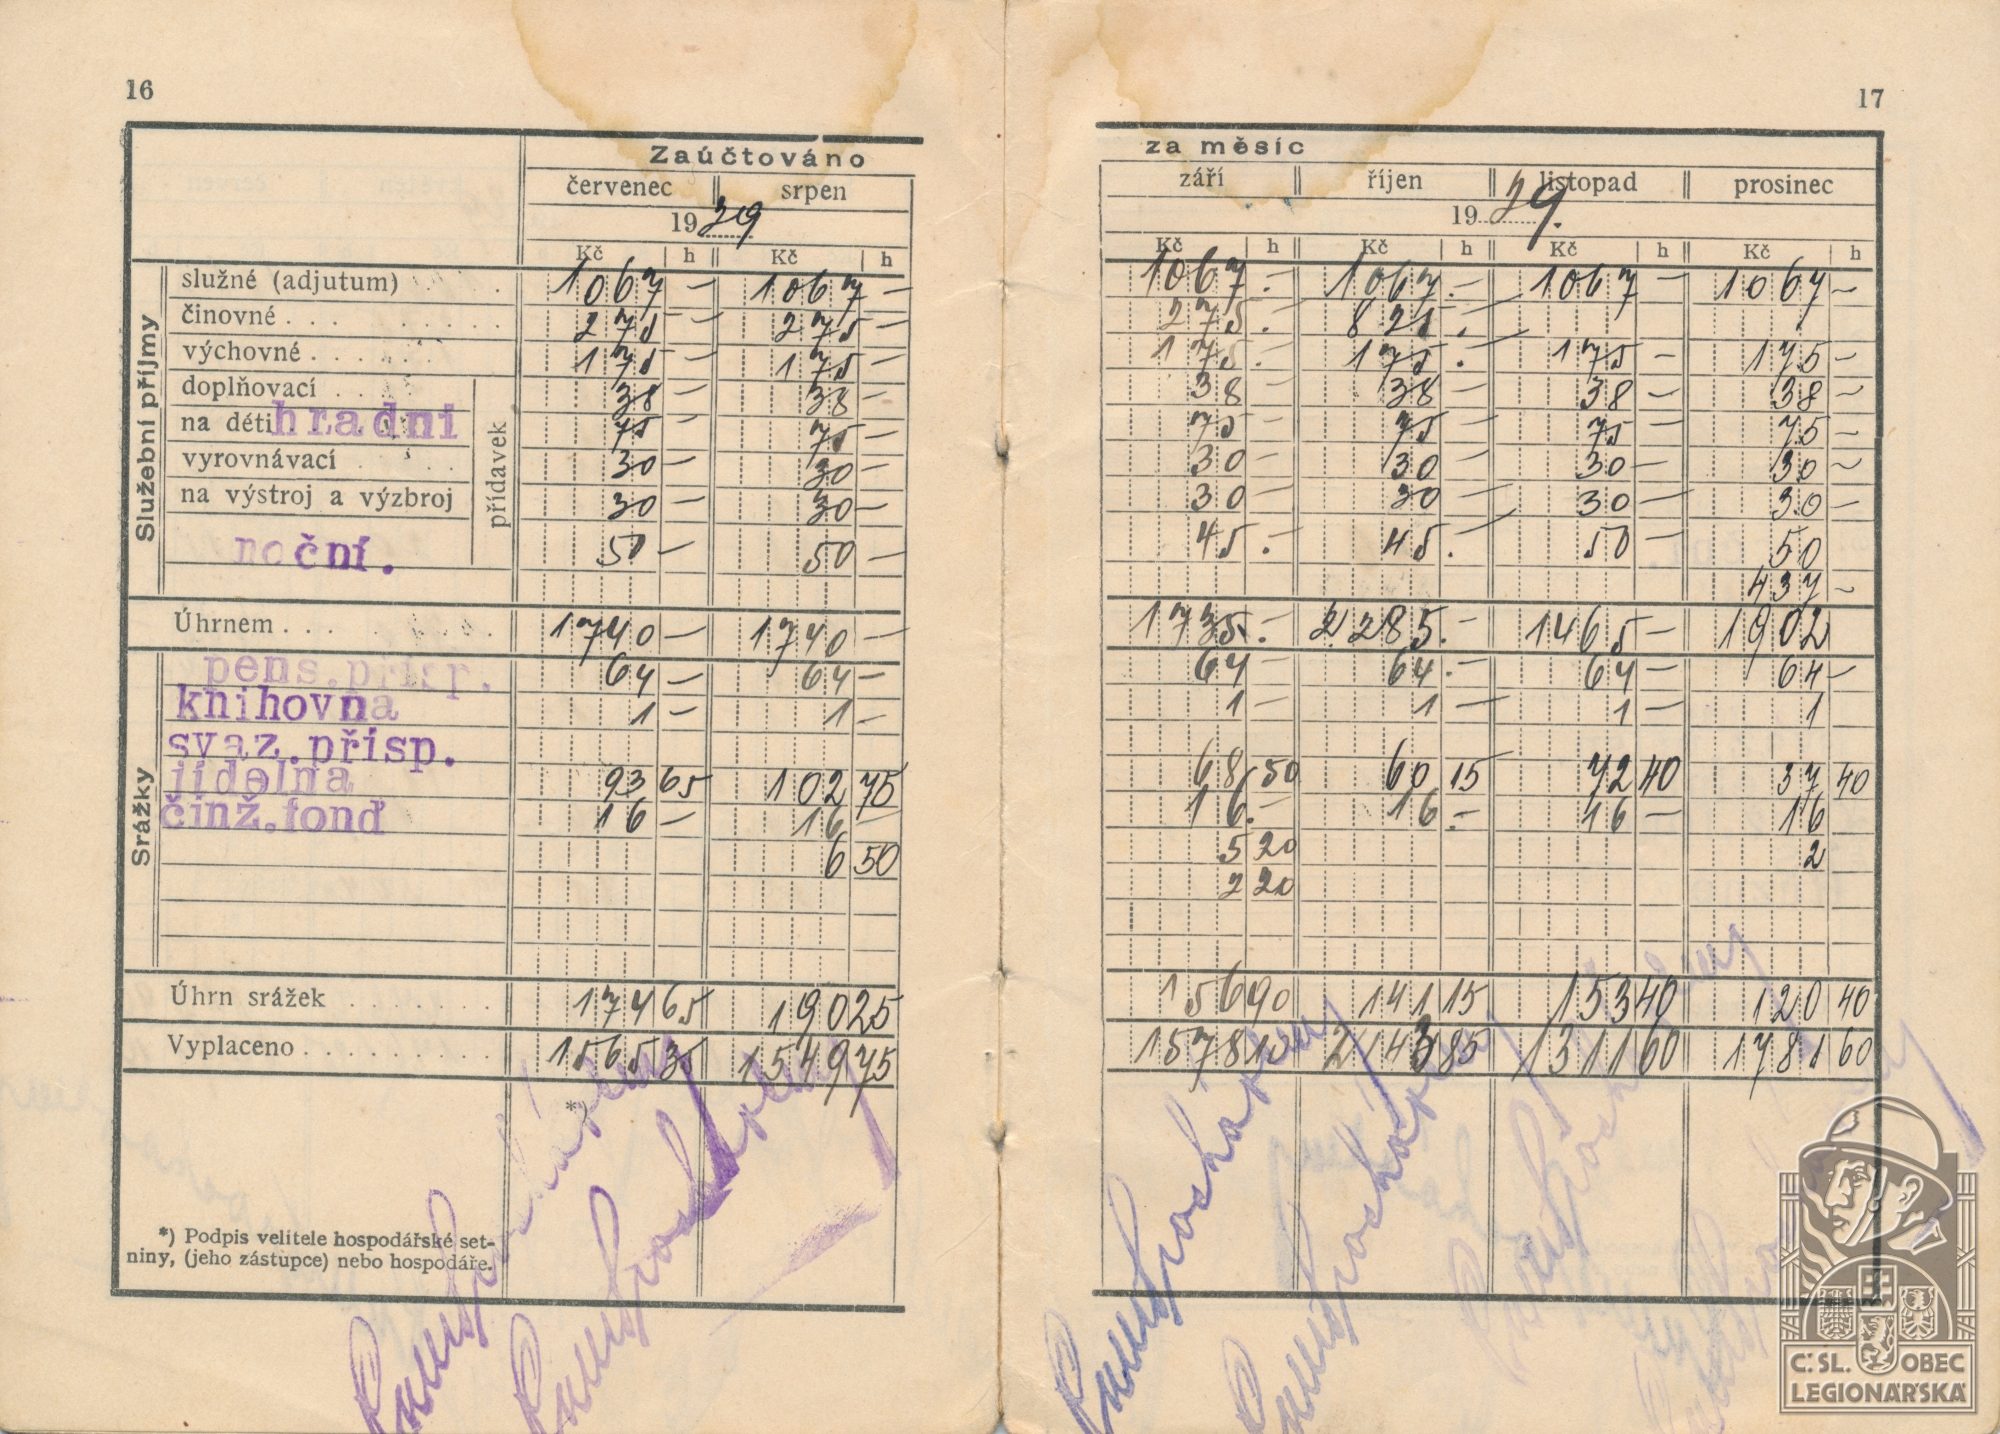 16
Zaúčtováno
červenec srpen
19 39
Kč h Kč h
Služební příjmy
služné (adjutum) 1067 — 1067 —
činovné 275 — 275 —
výchovné 175 — 175 —
přídavek
doplňovací 38 — 38 —
na děti hradní 75 — 75 —
vyrovnávací 30 — 30 —
na výstroj a výzbroj 30 — 30 —
noční. 50 — 50 —
Úhrnem 1740 — 1740 —
Srážky
pens.přísp. 64 — 64 —
knihovna 1 — 1 —
svaz.přísp.
jídelna 93 65 102 75
činž.fond 16 — 16 —
6 50
Úhrn srážek 174 65 190 25
Vyplaceno 1565 35 1549 75
*)
*) Podpis velitele hospodářské set-
niny, (jeho zástupce) nebo hospodáře.
17
za měsíc
září říjen listopad prosinec
19 39.
Kč h Kč h Kč h Kč h
1067 . — 1067 . — 1067 — 1067 —
275 . 825 .
175 . 175 . 175 — 175 —
38 — 38 — 38 — 38 —
75 — 75 — 75 — 75 —
30 — 30 — 30 — 30 —
30 — 30 — 30 — 30 —
45 . 45 . 50 — 50
437 —
1735 . — 2285 . — 1465 — 1902
64 — 64 . — 64 — 64 —
1 — 1 — 1 — 1
68 50 60 15 72 40 37 40
16 . — 16 . — 16 — 16
5 20 2
2 20
156 90 141 15 153 40 120 40
1578 10 2143 85 1311 60 1781 60
Č. SL. OBEC
LEGIONÁŘSKÁ